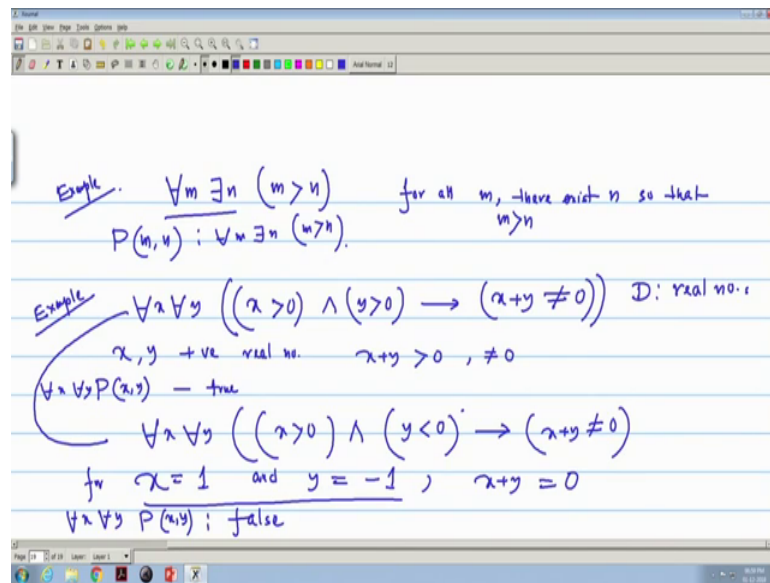 Journal
File Edit View Page Tools Options Help
Arial Normal 12
Example. ∀m ∃n (m>n) for all m, there exist n so that
m>n
P(m,n) : ∀m ∃n (m>n).
Example ∀x ∀y ((x>0) ∧ (y>0) ⟶ (x+y ≠ 0)) D: real no.s
x, y +ve real no. x+y > 0 , ≠ 0
∀x ∀y P(x,y) – true
∀x ∀y ((x>0) ∧ (y<0) ⟶ (x+y ≠ 0)
for x = 1 and y = -1 , x+y = 0
∀x ∀y P(x,y) : false
Page 19 of 19 Layer: Layer 1